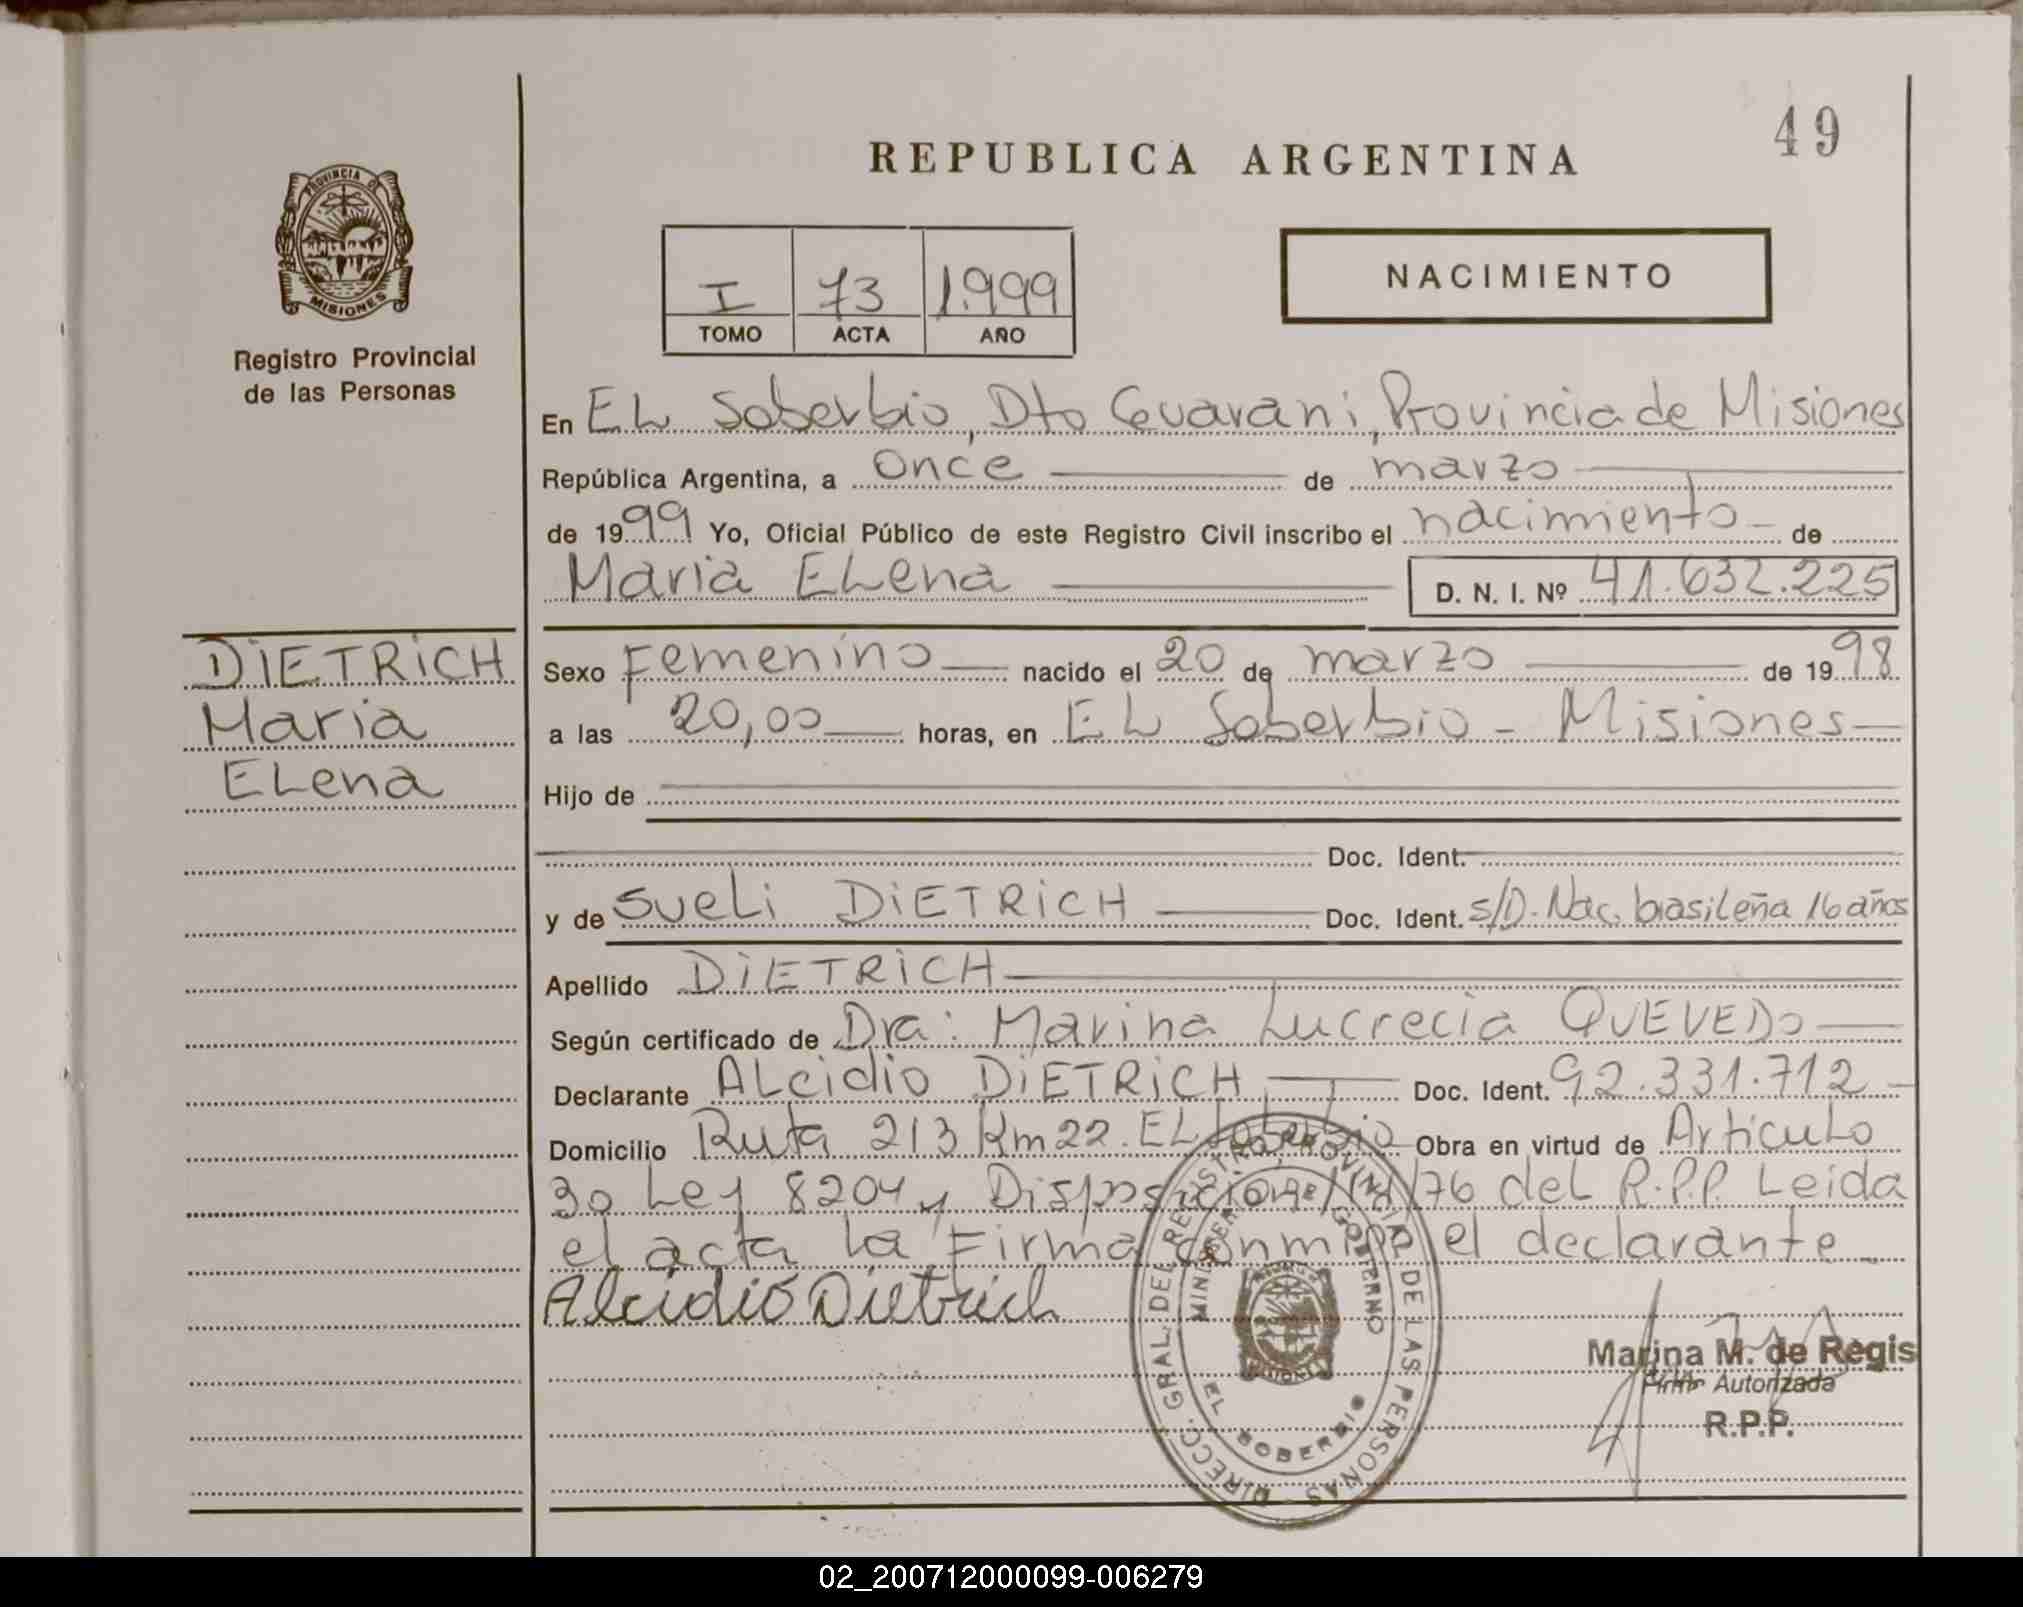 49
REPUBLICA ARGENTINA
PROVINCIA DE
MISIONES
Registro Provincial
de las Personas
I 73 1.999
TOMO ACTA AÑO
NACIMIENTO
En EL Soberbio, Dto Guarani, Provincia de Misiones
República Argentina, a once de marzo
de 1999 Yo, Oficial Público de este Registro Civil inscribo el nacimiento de
Maria ELena D. N. I. Nº 41.632.225
DIETRICH
Maria
ELena
Sexo Femenino nacido el 20 de marzo de 1998
a las 20,00 horas, en EL Soberbio - Misiones
Hijo de
Doc. Ident.
y de Sueli DIETRICH Doc. Ident. S/D. Nac. brasileña 16 años
Apellido DIETRICH
Según certificado de Dra: Marina Lucrecia QUEVEDO
Declarante ALcidio DIETRICH Doc. Ident. 92.331.712
Domicilio Ruta 213 Km 22. EL Soberbio Obra en virtud de Articulo
30 Ley 8204 y Disposición /76 del R.P.P. Leida
el acta la Firma conmigo el declarante
Alcidio Dietrich
DIRECC. GRAL. DEL REGISTRO PROVINCIAL DE LAS PERSONAS
MINISTERIO DE GOBIERNO
EL SOBERBIO
Marina M. de Regis
Firma Autorizada
R.P.P.
02_200712000099-006279